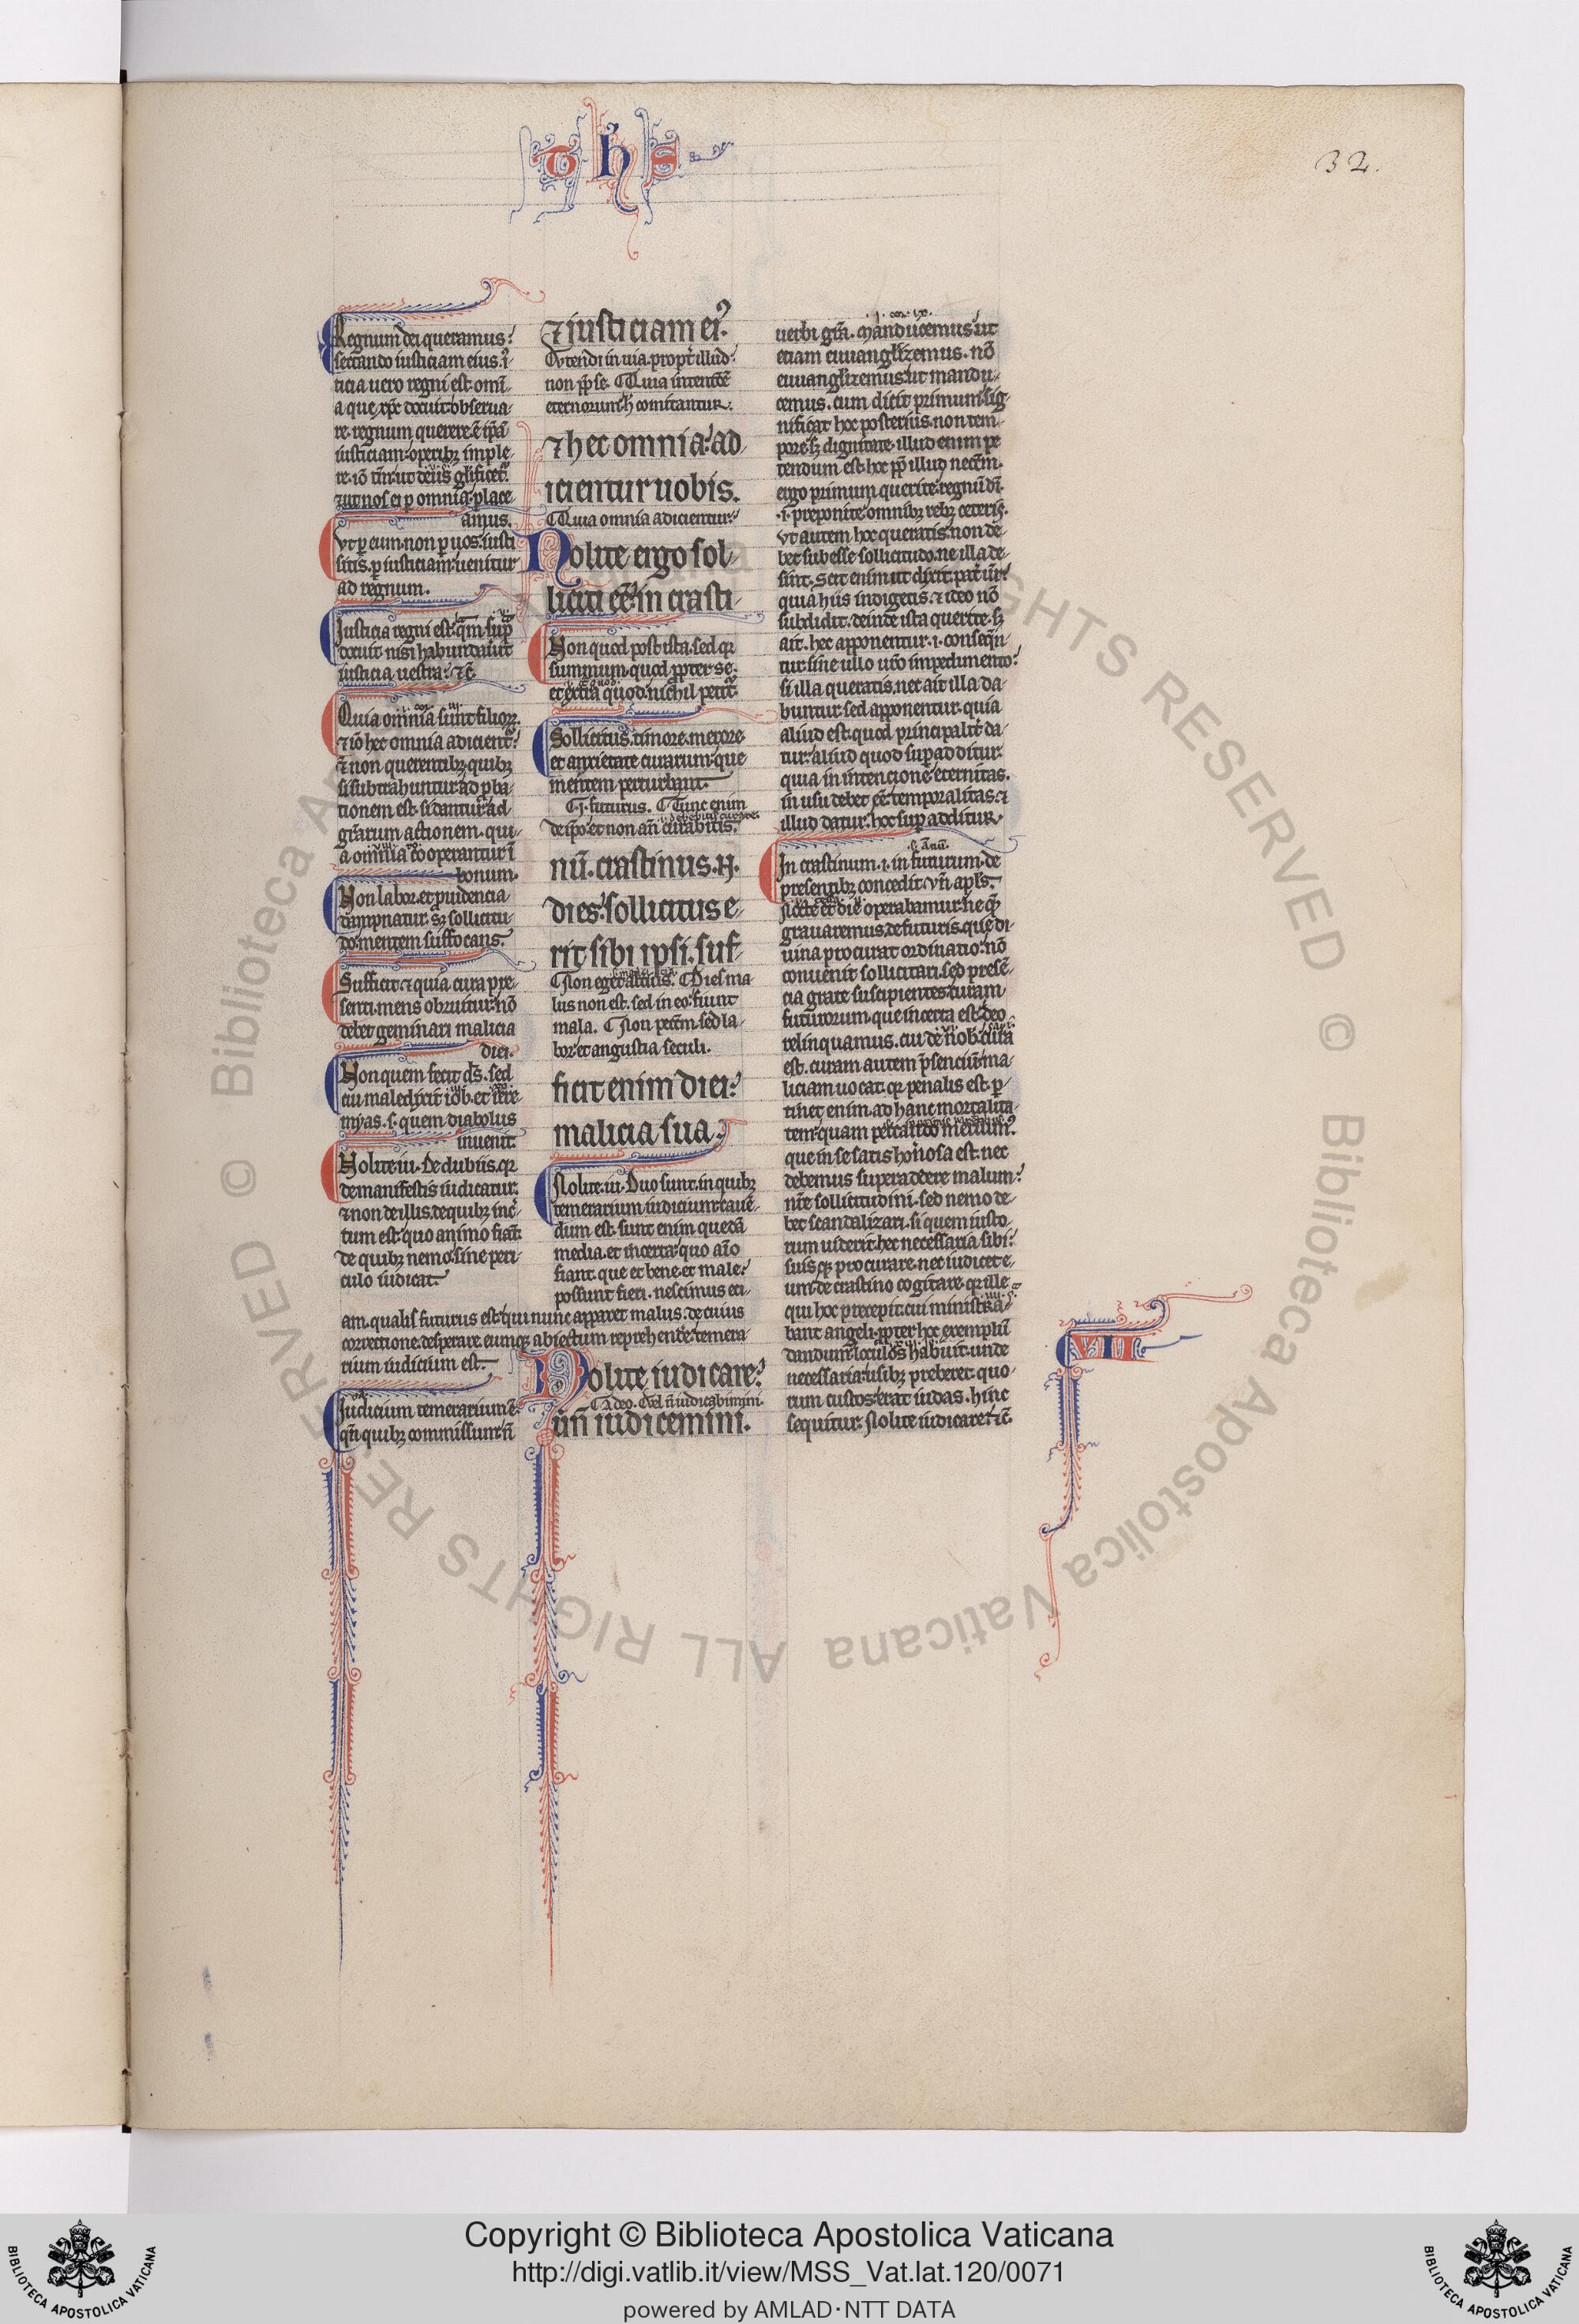 T h S
32.
Regnum dei queramus:
sectando iusticiam eius. i
ticia uero regni est omi
a que xpc docuit obserua
re. regnum querere ē ipā
iusticiam operibꝫ imple
re. iō tm̄ ut deus glificet᷑
⁊ ut nos ei ꝑ omnia place
amus.
Vt ꝑ eum. non ꝑ uos iusti
sitis. ꝑ iusticiam uenitur
ad regnum.
Iusticia regni est qm̄ sup̄
docuit nisi habundauit
iusticia uestra. ⁊c̄
Quia omnia sunt filioꝝ.
⁊ iō hec omnia adicient᷑
⁊ non querentibꝫ. quibꝫ
si subtrahuntur. ad ꝓba
tionem est. si dantur. ad
grarum actionem. qui
a omnia cooperantur ī
bonum.
Non labor. et ꝓuidencia
dampnatur. sꝫ sollicitu
do mentem suffocans.
Sufficit. ⁊ quia cura pre
senti mens obruitur. nō
debet geminari malicia
diei.
Non quem fecit ds̄. sed
cui maledixit iob. et iere
myas. s. quem diabolus
inuenit.
Nolite iu. De dubiis. qꝛ
de manifestis iudicatur.
⁊ non de illis. de quibꝫ inc̄
tum est. quo animo fiat.
de quibꝫ nemo sine peri
culo iudicat.
⁊ iusticiam ei᷒.
Vtendi in uia. propt᷑ illud.
non ꝓp̄ se. Quia intentōē
eternorum h̄ comitantur.
⁊ hec omnia ad
icientur uobis.
Quia omnia adicientur.
Nolite ergo sol
liciti eē in crasti
Non quod post ista. sed qꝛ
summum. quod ꝓpter se.
et extra quod nichil petit᷑.
Sollicitus. timore. merore
et anxietate curarum que
mentem perturbant.
.i. futurus. Tunc enim
de ipō. et non an̄ curabitis.
nū. crastinus. n̄.
dies. sollicitus e
rit sibi ipsi. suf
Non eget aliis. Dies ma
lus non est. sed in eo fiunt
mala. Non petm̄. sed la
bor. et angustia seculi.
ficit enim diei.
malicia sua.
Nolite. iu. Duo sunt. in quibꝫ
temerarium iudicium cauē
dum est. sunt enim quedā
media. et incerta. quo aīo
fiant. que et bene. et male.
possunt fieri. nescimus eti
am. qualis futurus est. qui nunc apparet malus. de cuius
correctione desperare. eumqꝫ abiectum reprehendere. temera
rium iudicium est.
Iudicium temerarium ē.
qn̄ quibꝫ commissum. n̄
Nolite iudicare.
A deo. Vel n̄ iudicabimini.
un̄ iudicemini.
.i. cor. ix.
uerbi gr̄a. Manducemus. ut
etiam euuanglizemus. nō
euuanglizemus. ut mandu
cemus. cum dicit primum. sig
nificat hoc posterius. non tem
pore. sꝫ dignitate. illud enim pe
tendum est. hoc ꝓp̄ illud necm̄.
ergo primum querite. regnū di.
.i. preponite. omnibꝫ rebꝫ ceteris.
Vt autem hoc queratis. non de
bet subesse sollicitudo. ne illa de
sint. Scit enim ut dixit. pat᷑ ur̄
quia hiis indigetis. ⁊ ideo nō
subdidit. deinde ista querite. sꝫ
ait. hec apponentur. .i. conseqn̄
tur. sine ullo urō impedimento.
si illa queratis. nec ait illa da
buntur. sed apponentur. quia
aliud est. quod principalit᷑ da
tur. aliud quod supadditur.
quia in intencione. eternitas.
in usu debet eē temporalitas. ⁊
illud datur. hoc supadditur.
In crastinum. .i. in futurum. de
presentibꝫ concedit. Vn̄ apls.
Nocte et die operabamur. ne qꝫ
grauaremus. de futuris. que di
uina procurat ordinatio. nō
conuenit sollicitari. sed presē
cia grate suscipientes. curam
futurorum. que incerta est. deo
relinquamus. cui de nob. cura
est. curam autem p̄sencium. ma
liciam uocat. qꝛ penalis est. ꝑ
tinet enim ad hanc mortalita
tem. quam peccando meruim᷒.
que in se satis honosa est. nec
debemus superaddere malum.
nr̄e sollicitudini. sed nemo de
bet scandalizari. si quem iusto
rum uiderit. hec necessaria sibi.
suisqꝫ procurare. nec iudicet e
um. de crastino cogitare. qꝛ ille
qui hoc precepit. cui ministra
bant angeli. ꝓpter hoc exemplū
dandum. loculos habuit. unde
necessaria. usibꝫ preberet. quo
rum custos erat iudas. hinc
sequitur. Nolite iudicare. ⁊c̄
VII
Copyright © Biblioteca Apostolica Vaticana
http://digi.vatlib.it/view/MSS_Vat.lat.120/0071
powered by AMLAD·NTT DATA
BIBLIOTECA APOSTOLICA VATICANA
BIBLIOTECA APOSTOLICA VATICANA
© Biblioteca Apostolica Vaticana ALL RIGHTS RESERVED